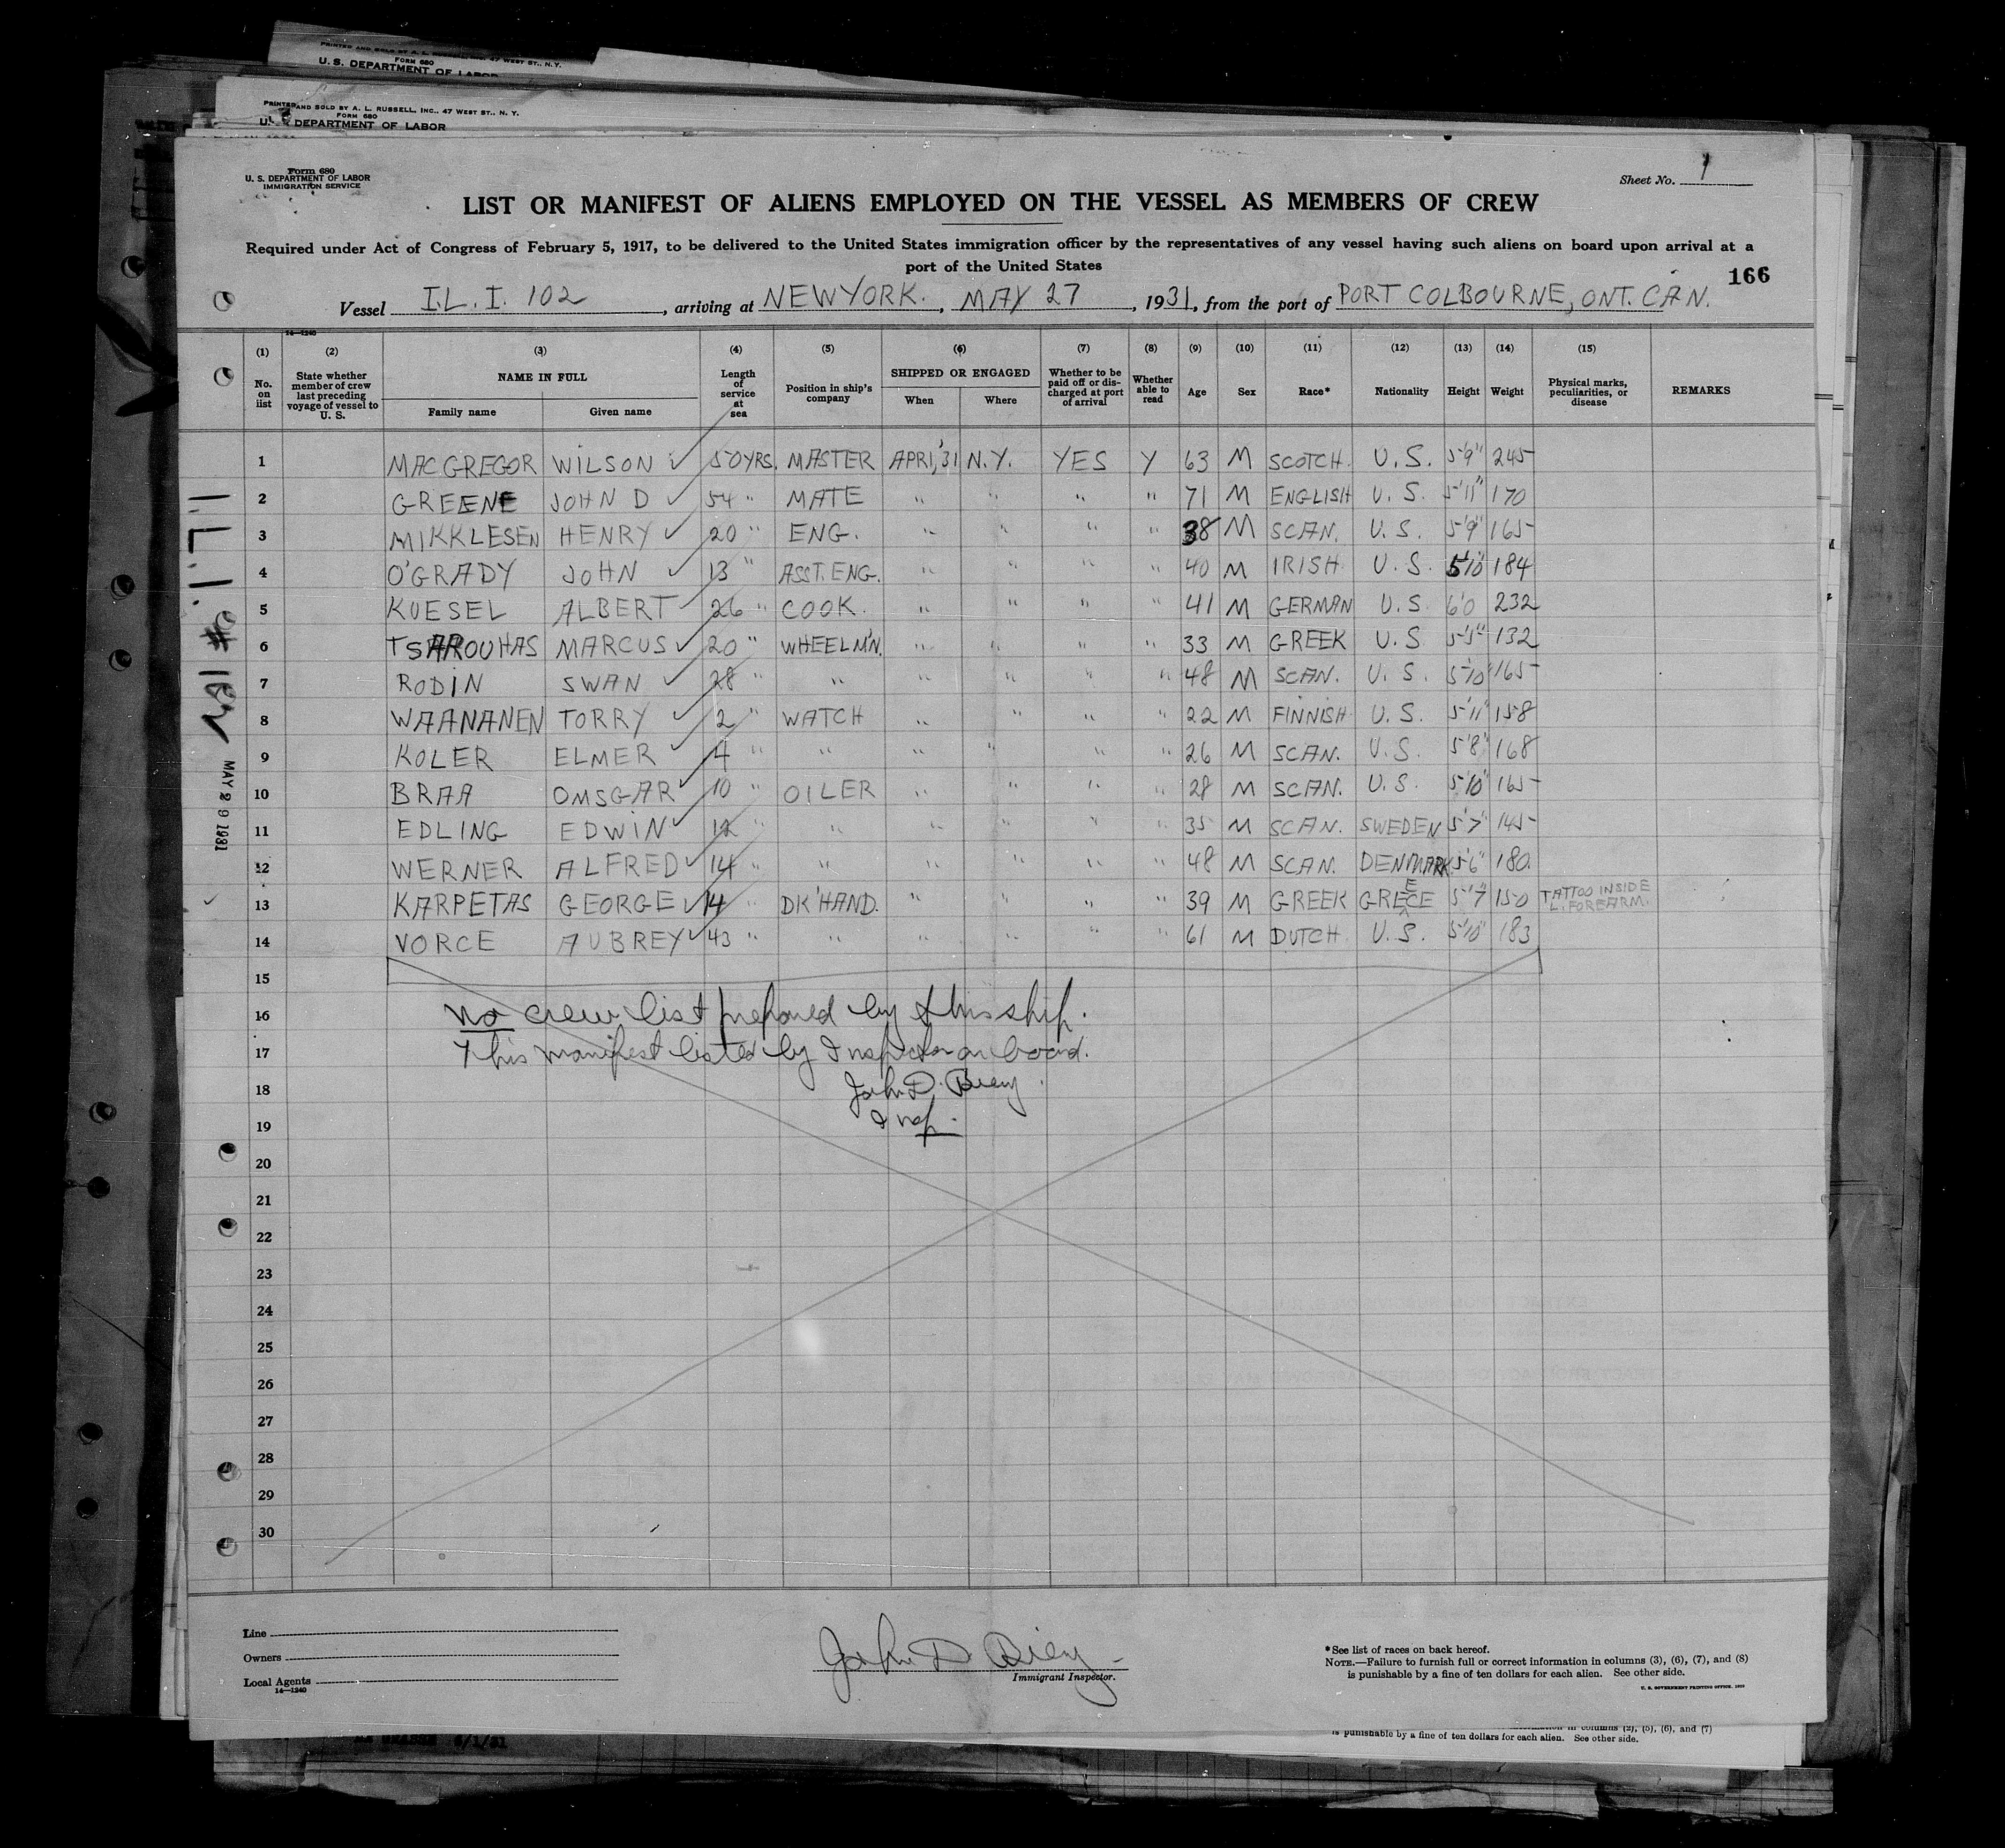 PRINTED AND SOLD BY A. L. RUSSELL, INC., 47 WEST ST., N. Y.
FORM 680
U. S. DEPARTMENT OF LABOR
PRINTED AND SOLD BY A. L. RUSSELL, INC., 47 WEST ST., N. Y.
FORM 680
U. S. DEPARTMENT OF LABOR
Form 680
U. S. DEPARTMENT OF LABOR
IMMIGRATION SERVICE
Sheet No. 1
LIST OR MANIFEST OF ALIENS EMPLOYED ON THE VESSEL AS MEMBERS OF CREW
Required under Act of Congress of February 5, 1917, to be delivered to the United States immigration officer by the representatives of any vessel having such aliens on board upon arrival at a
port of the United States
166
Vessel I.L.I. 102, arriving at NEW YORK., MAY 27, 1931, from the port of PORT COLBOURNE, ONT. CAN.
14—1240
(1) (2) (3) (4) (5) (6) (7) (8) (9) (10) (11) (12) (13) (14) (15)
No. on list
State whether member of crew last preceding voyage of vessel to U. S.
NAME IN FULL
Family name Given name
Length of service at sea
Position in ship's company
SHIPPED OR ENGAGED
When Where
Whether to be paid off or discharged at port of arrival
Whether able to read
Age Sex Race* Nationality Height Weight
Physical marks, peculiarities, or disease
REMARKS
1 MACGREGOR WILSON ✓ 50 YRS. MASTER APR 1,'31 N.Y. YES Y 63 M SCOTCH. U.S. 5'9" 245
2 GREENE JOHN D ✓ 54 " MATE " " " " 71 M ENGLISH U.S. 5'11" 170
3 MIKKLESEN HENRY ✓ 20 " ENG. " " " " 38 M SCAN. U.S. 5'9" 165
4 O'GRADY JOHN ✓ 13 " ASST. ENG. " " " " 40 M IRISH U.S. 5'10" 184
5 KUESEL ALBERT ✓ 26 " COOK. " " " " 41 M GERMAN U.S. 6'0 232
6 TSAROUHAS MARCUS ✓ 20 " WHEELM'N. " " " " 33 M GREEK U.S 5'5" 132
7 RODIN SWAN ✓ 28 " " " " " " 48 M SCAN. U.S. 5'10" 165
8 WAANANEN TORRY ✓ 2 " WATCH " " " " 22 M FINNISH U.S. 5'11" 158
9 KOLER ELMER ✓ 4 " " " " " " 26 M SCAN. U.S. 5'8" 168
10 BRAA OMSGAR ✓ 10 " OILER " " " " 28 M SCAN. U.S. 5'10" 165
11 EDLING EDWIN ✓ 12 " " " " " " 35 M SCAN. SWEDEN 5'7" 145
12 WERNER ALFRED ✓ 14 " " " " " " 48 M SCAN. DENMARK 5'6" 180
13 KARPETAS GEORGE ✓ 14 " DK'HAND. " " " " 39 M GREEK GREECE 5'7 150 TATTOO INSIDE L. FOREARM.
14 VORCE AUBREY ✓ 43 " " " " " " 61 M DUTCH U.S. 5'10" 183
15
16 No crew list prepared by this ship.
17 This manifest listed by Inspector on board.
18 John D. Biery
19 Insp.
20
21
22
23
24
25
26
27
28
29
30
I.L.I. # 102
MAY 29 1931
Line
Owners
Local Agents
14—1240
John D Biery
Immigrant Inspector.
*See list of races on back hereof.
NOTE.—Failure to furnish full or correct information in columns (3), (6), (7), and (8)
is punishable by a fine of ten dollars for each alien. See other side.
U. S. GOVERNMENT PRINTING OFFICE
in columns (2), (5), (6), and (7)
is punishable by a fine of ten dollars for each alien. See other side.
6/1/31